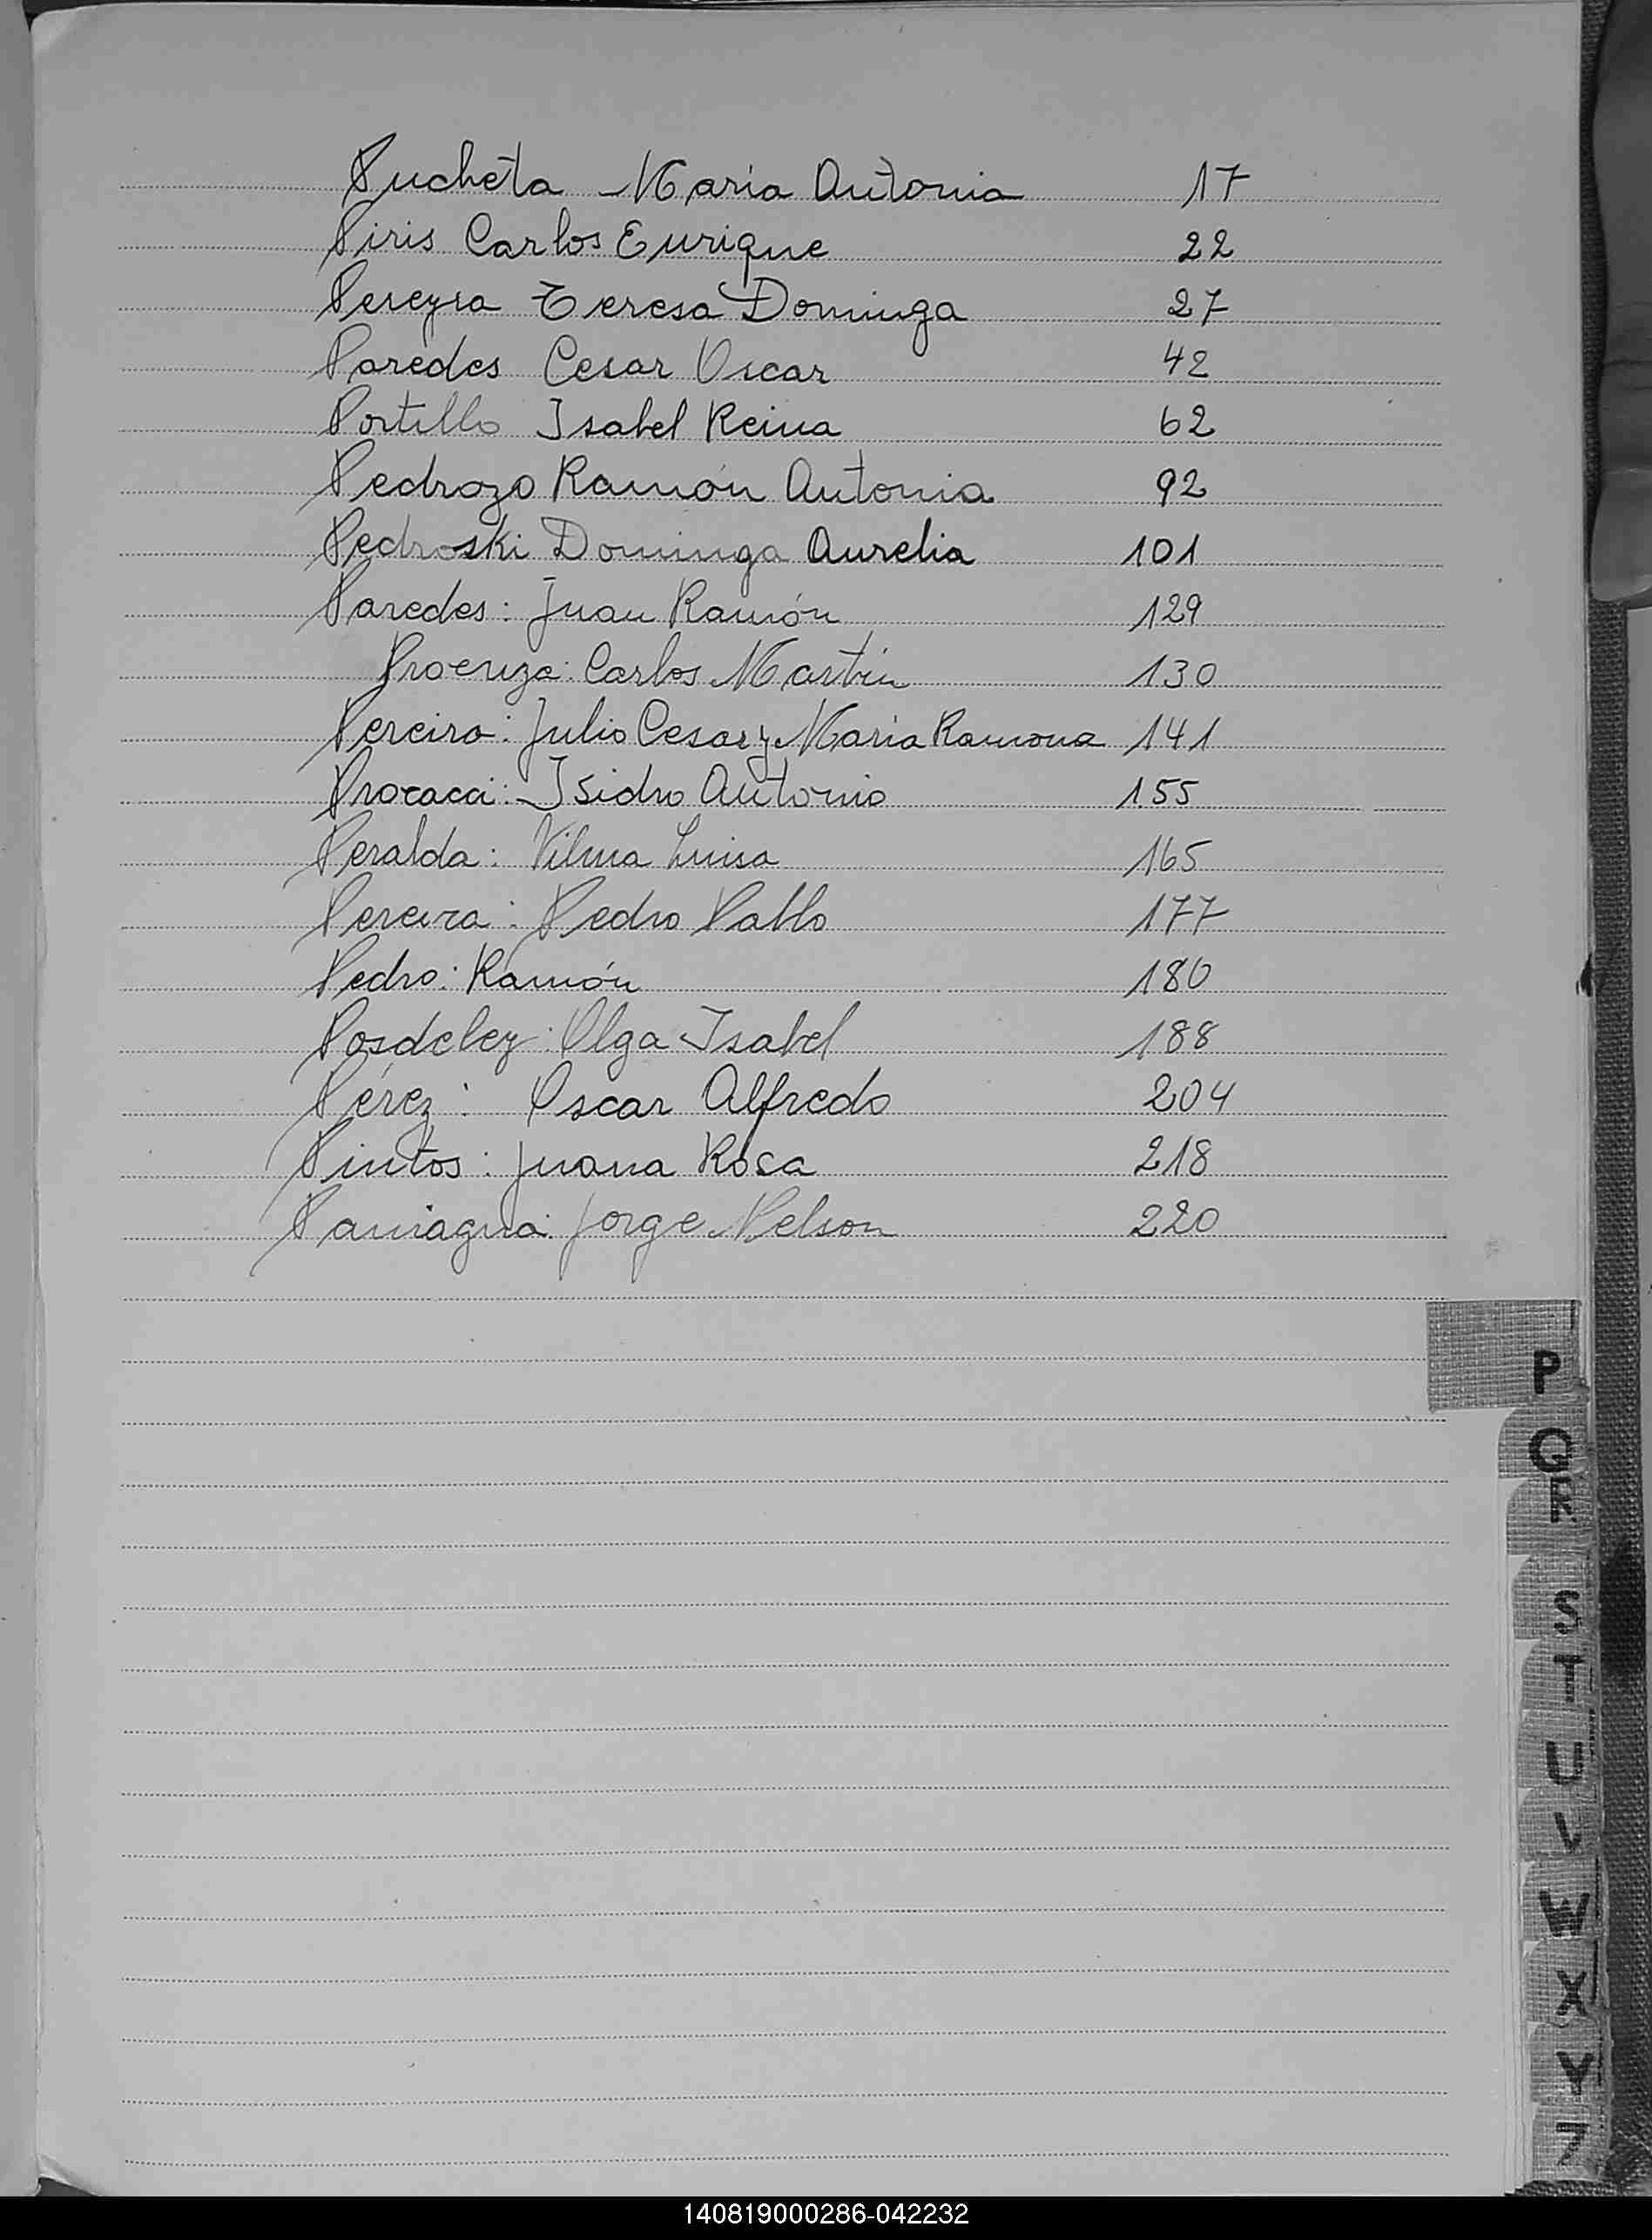 Pucheta Maria Antonia 17
Piris Carlos Enrique 22
Pereyra Teresa Dominga 27
Paredes Cesar Oscar 42
Portillo Isabel Reina 62
Pedrozo Ramón Antonia 92
Pedroski Dominga Aurelia 101
Paredes: Juan Ramón 129
Proenza: Carlos Martin 130
Pereira: Julio Cesar y Maria Ramona 141
Procacci: Isidro Antonio 155
Peralda: Vilma Luisa 165
Pereira: Pedro Pablo 177
Pedro: Ramón 180
Posdeley: Olga Isabel 188
Pérez: Oscar Alfredo 204
Pintos: Juana Rosa 218
Paniagua: Jorge Nelson 220
P
Q
R
S
T
U
V
W
X
Y
Z
140819000286-042232